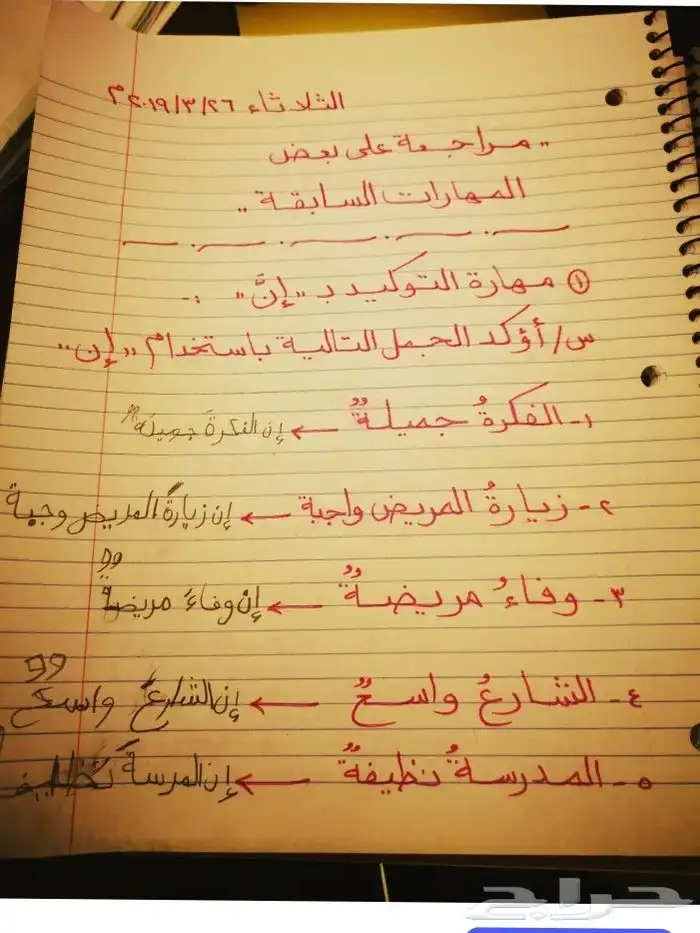 الثلاثاء ٢٠١٩/٣/٢٦م
.. مراجعة على بعض
المهارات السابقة ..
① مهارة التوكيد بـ ,,إنَّ,, :-
س/ أؤكد الجمل التالية باستخدام ,,إن,,
١- الفكرةُ جميلةٌ ← إن الفكرةَ جميلة
٢- زيارةُ المريض واجبة ← إن زيارةَ المريض وجبة
٣- وفاءُ مريضةٌ ← إن وفاءَ مريضةٌ
٤- الشارعُ واسعٌ ← إن الشارعَ واسعٌ
٥- المدرسةُ نظيفةٌ ← إن المرسةَ
حراج